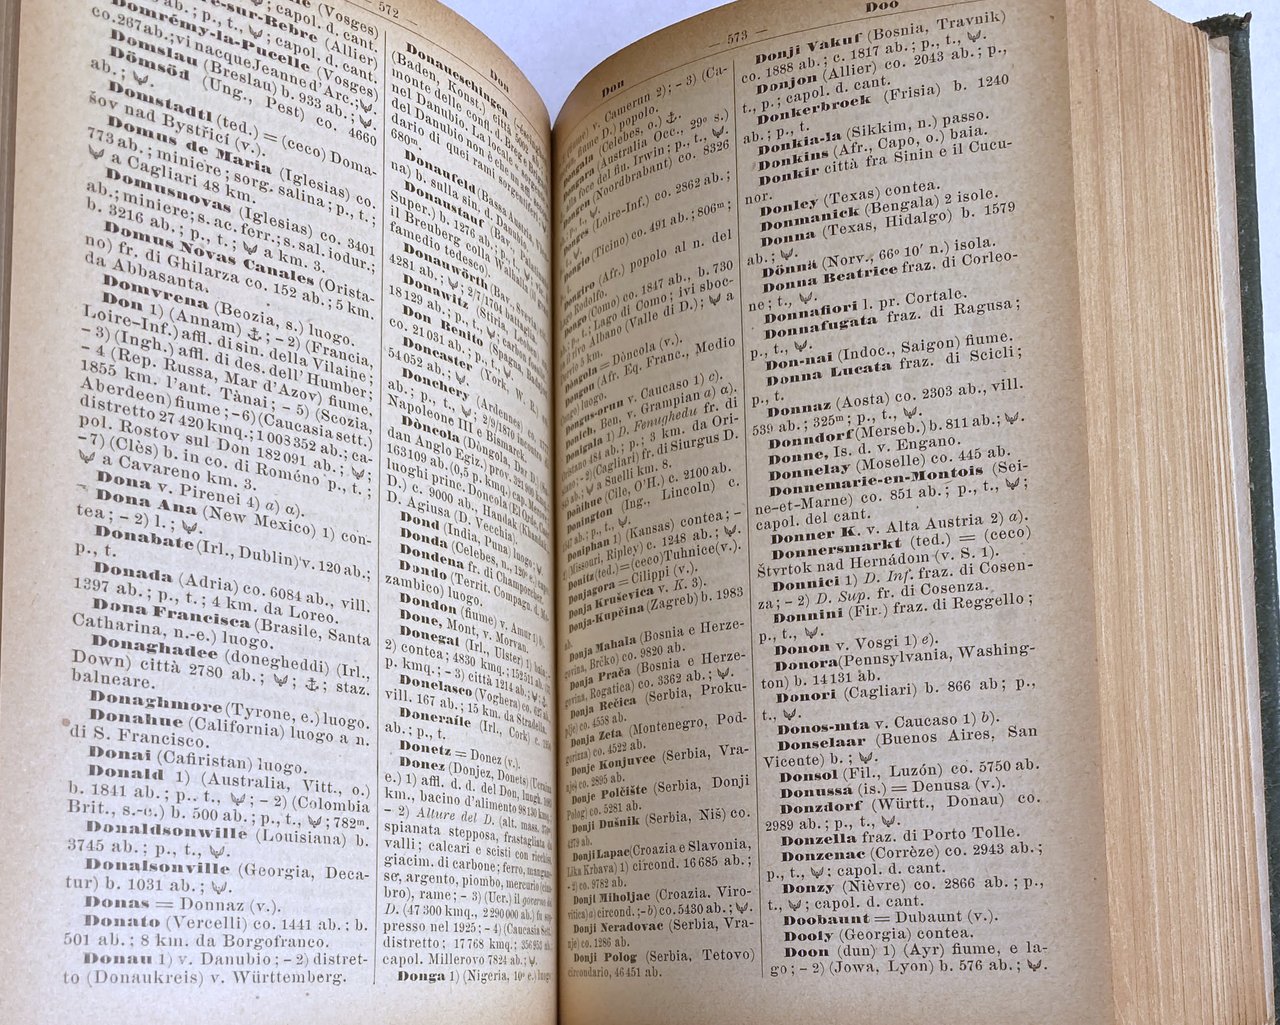 — 572 —
Don
Domrémy-la-Pucelle (Vosges)
co. 267 ab.; vi nacque Jeanne d'Arc;
Domslau (Breslau) b. 933 ab.;
Dömsöd (Ung., Pest) co. 4660
ab.;
Domstadtl (ted.) = (ceco) Doma-
šov nad Bystřicí (v.).
Domus de Maria (Iglesias) co.
773 ab.; miniere; sorg. salina; p., t.;
a Cagliari 48 km.
Domusnovas (Iglesias) co. 3401
ab.; miniere; s. ac. ferr.; s. sal. iodur.;
b. 3216 ab.; p., t.; a km. 3.
Domus Novas Canales (Orista-
no) fr. di Ghilarza co. 152 ab.; 5 km.
da Abbasanta.
Domyrena (Beozia, s.) luogo.
Don 1) (Annam) ; - 2) (Francia,
Loire-Inf.) affl. di sin. della Vilaine;
- 3) (Ingh.) affl. di des. dell'Humber;
- 4 (Rep. Russa, Mar d'Azov) fiume,
1855 km. l'ant. Tànai; - 5) (Scozia,
Aberdeen) fiume; -6) (Caucasia sett.)
distretto 27 420 kmq.; 1 008 352 ab.; ca-
pol. Rostov sul Don 182 091 ab.;
-7) (Clès) b. in co. di Roméno p., t.;
a Cavareno km. 3.
Dona v. Pirenei 4) a) α).
Dona Ana (New Mexico) 1) con-
tea; - 2) l.;
Donabate (Irl., Dublin) v. 120 ab.;
p., t.
Donada (Adria) co. 6084 ab., vill.
1397 ab.; p., t.; 4 km. da Loreo.
Dona Francisca (Brasile, Santa
Catharina, n.-e.) luogo.
Donaghadee (donegheddi) (Irl.,
Down) città 2780 ab.; ; ; staz.
balneare.
Donaghmore (Tyrone, e.) luogo.
Donahue (California) luogo a n.
di S. Francisco.
Donai (Cafiristan) luogo.
Donald 1) (Australia, Vitt., o.)
b. 1841 ab.; p., t., ; - 2) (Colombia
Brit., s.-e.) b. 500 ab.; p., t., ; 782m.
Donaldsonville (Louisiana) b.
3745 ab.; p., t.,
Donalsonville (Georgia, Deca-
tur) b. 1031 ab.;
Donas = Donnaz (v.).
Donato (Vercelli) co. 1441 ab.; b.
501 ab.; 8 km. da Borgofranco.
Donau 1) v. Danubio; - 2) distret-
to (Donaukreis) v. Württemberg.
Donaueschingen
(Baden, Konst.)
monte delle confl. di Breg e
nel Danubio. La locale
del Danubio non è che un
dario di quei rami sorgentiferi.
680m.
Donaufeld (Bassa Austria,
na) b. sulla sin. d. Danubio.
Donaustauf (Bav.,
Super.) b. 1276 ab.; p., t.,
il Breuberg colla Valhalla
famedio tedesco).
Donauwörth (Bav.,
4281 ab.; ; 2/7/1704 battaglia
Donawitz (Stiria, Leoben)
18 129 ab.; p., t., ; carbon
Don Benito (Spagna, Badajoz)
co. 21 031 ab.; p., t.,
Doncaster (York, W. R.)
54 052 ab.;
Donchery (Ardennes) co.
ab.; p., t., ; 2/9/1870
Napoleone III e Bismarck.
Dòncola (Dòngola, Dar
dan Anglo Egiz.) prov.
163 109 ab. (0,5 p. kmq.)
luoghi princ. Doncola (El Orde,
D.) c. 9000 ab., Handak (Khandak)
D. Agiusa (D. Vecchia).
Dond (India, Puna) luogo
Donda (Celebes, n., 120° e.)
Dondena fr. di Champorcher
Dondo (Territ. Compagn. d. Mo-
zambico) luogo.
Dondon (fiume) v. Amur
Done, Mont, v. Morvan.
Donegal (Irl., Ulster) 1)
2) contea; 4830 kmq.; 152 511
p. kmq.; - 3) città 1214 ab.;
Donelasco (Voghera) co.
vill. 167 ab.; 15 km. da Stradella.
Doneraile (Irl., Cork)
ab.; p., t.
Donetz = Donez (v.).
Donez (Donjez, Donets) (Ucraina
e.) 1) affl. d. d. del Don, lungh.
km., bacino d'alimento 98 130 kmq.
- 2) Alture del D. (alt. mass.
spianata stepposa, frastagliata
valli; calcari e scisti con
giacim. di carbone; ferro, mangane-
se, argento, piombo, mercurio (cina-
bro), rame; - 3) (Ucr.) il governo
D. (47 300 kmq., 2 290 000 ab.) fu sop-
presso nel 1925; - 4) (Caucasia Sett.)
distretto; 17 768 kmq.;
capol. Millerovo 7824 ab.;
Donga 1) (Nigeria, 10° e.) luogo
Don
— 573 —
Doo
v. Camerun 2); - 3) (Ca-
fiume D.) popolo.
Dongala (Celebes, o.)
Dongara (Australia Occ., 29° s.)
alla foce del fiu. Irwin; p., t.,
Dongen (Noordbrabant) co. 8326
Donges (Loire-Inf.) co. 2862 ab.;
Dongio (Ticino) co. 491 ab.; 806m;
Dongiro (Afr.) popolo al n. del
lago Rodolfo.
Dongo (Como) co. 1847 ab., b. 730
ab.; p., t.; Lago di Como; ivi sboc-
ca il rivo Albano (Valle di D.); a
km.
Dongola = Dòncola (v.).
Dongou (Afr. Eq. Franc., Medio
Congo) luogo.
Dongus-orun v. Caucaso 1) c).
Donich, Ben, v. Grampian a) α).
Donigala 1) D. Fenughedu fr. di
Oristano 484 ab.; p.; 3 km. da Ori-
stano; -2) (Cagliari) fr. di Siurgus D.
ab.; a Suelli km. 8.
Doñihue (Cile, O'H.) c. 2100 ab.
Donington (Ing., Lincoln) c.
ab.; p., t.,
Doniphan 1) (Kansas) contea; -
(Missouri, Ripley) c. 1248 ab.;
Donitz (ted.) = (ceco) Tuhnice (v.).
Donjagora = Cilippi (v.).
Donja Kruševica v. K. 3).
Donja-Kupčina (Zagreb) b. 1983
ab.
Donja Mahala (Bosnia e Herze-
govina, Brčko) co. 9820 ab.
Donja Prača (Bosnia e Herze-
govina, Rogatica) co. 3362 ab.;
Donja Rečica (Serbia, Proku-
plje) co. 4558 ab.
Donja Zeta (Montenegro, Pod-
gorizza) co. 4522 ab.
Donje Konjuvce (Serbia, Vra-
nje) co. 2895 ab.
Donje Polčište (Serbia, Donji
Polog) co. 5281 ab.
Donji Dušnik (Serbia, Niš) co.
4279 ab.
Donji Lapac (Croazia e Slavonia,
Lika Krbava) 1) circond. 16 685 ab.;
- 2) co. 9782 ab.
Donji Miholjac (Croazia. Viro-
vitica) a) circond.; -b) co. 5430 ab.;
Donji Neradovac (Serbia, Vra-
nje) co. 1286 ab.
Donji Polog (Serbia, Tetovo)
circondario, 46 451 ab.
Donji Vakuf (Bosnia, Travnik)
co. 1888 ab.; c. 1817 ab.; p., t.,
Donjon (Allier) co. 2043 ab.; p.,
t., p.; capol. d. cant.
Donkerbroek (Frisia) b. 1240
ab.; p., t.
Donkia-la (Sikkim, n.) passo.
Donkins (Afr., Capo, o.) baia.
Donkir città fra Sinin e il Cucu-
nor.
Donley (Texas) contea.
Donmanick (Bengala) 2 isole.
Donna (Texas, Hidalgo) b. 1579
ab.;
Dönna (Norv., 66° 10' n.) isola.
Donna Beatrice fraz. di Corleo-
ne; t.,
Donnafiori l. pr. Cortale.
Donnafugata fraz. di Ragusa;
p., t.,
Don-nai (Indoc., Saigon) fiume.
Donna Lucata fraz. di Scicli;
p., t.
Donnaz (Aosta) co. 2303 ab., vill.
539 ab.; 325m; p., t.,
Donndorf (Merseb.) b. 811 ab.;
Donne, Is. d. v. Engano.
Donnelay (Moselle) co. 445 ab.
Donnemarie-en-Montois (Sei-
ne-et-Marne) co. 851 ab.; p., t., ;
capol. del cant.
Donner K. v. Alta Austria 2) α).
Donnersmarkt (ted.) = (ceco)
Štvrtok nad Hernádom (v. S. 1).
Donnici 1) D. Inf. fraz. di Cosen-
za; - 2) D. Sup. fr. di Cosenza.
Donnini (Fir.) fraz. di Reggello;
p., t.,
Donon v. Vosgi 1) e).
Donora (Pennsylvania, Washing-
ton) b. 14 131 ab.
Donori (Cagliari) b. 866 ab; p.,
t.,
Donos-mta v. Caucaso 1) b).
Donselaar (Buenos Aires, San
Vicente) b. ;
Donsol (Fil., Luzón) co. 5750 ab.
Donussa (is.) = Denusa (v.).
Donzdorf (Württ., Donau) co.
2989 ab.; p., t.,
Donzella fraz. di Porto Tolle.
Donzenac (Corrèze) co. 2943 ab.;
p., t., ; capol. d. cant.
Donzy (Nièvre) co. 2866 ab.; p.,
t., ; capol. d. cant.
Doobaunt = Dubaunt (v.).
Dooly (Georgia) contea.
Doon (dun) 1) (Ayr) fiume, e la-
go; - 2) (Jowa, Lyon) b. 576 ab.;